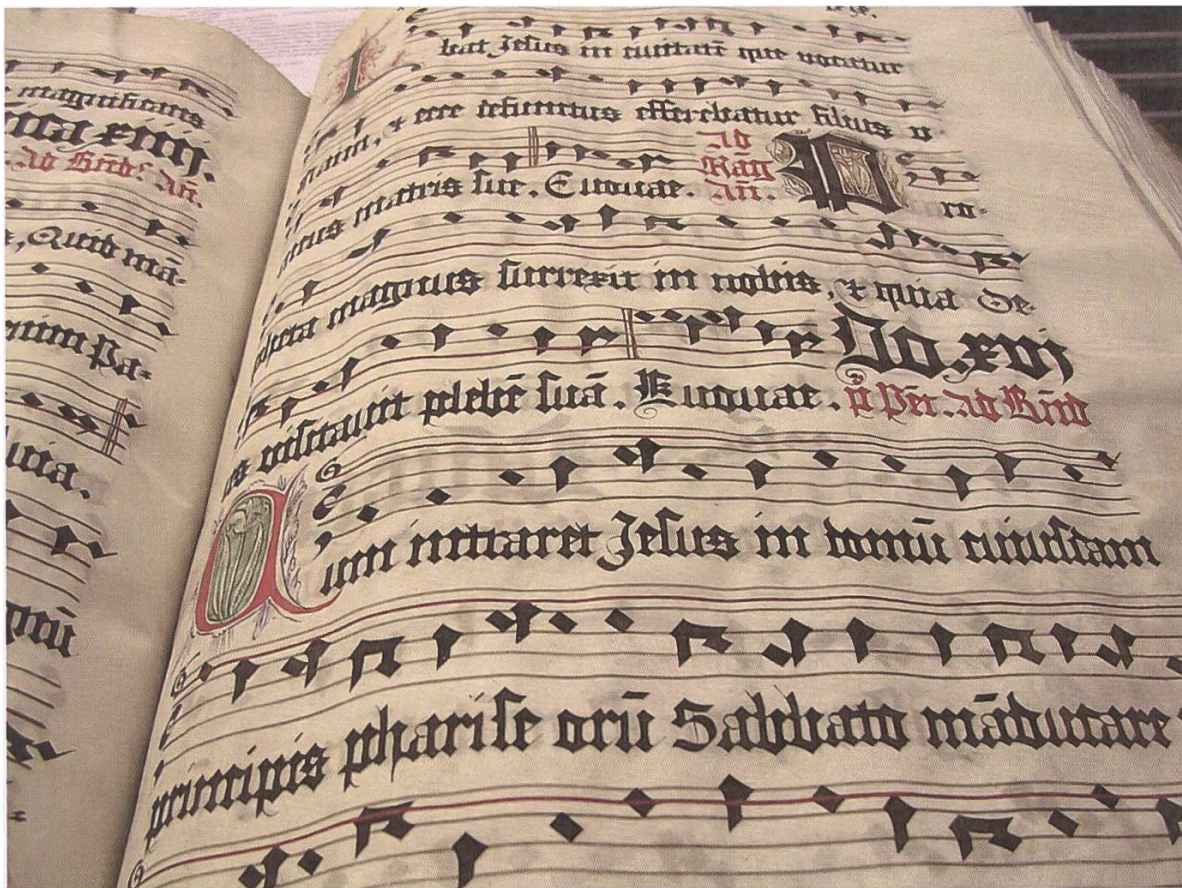 Ad Bnd. Añ.
Quid mā-
Pa-
Ibat Jesus in ciuitatē que vocatur
Naim, & ecce defunctus efferebatur filius v-
nicus matris sue. Euouae. Ad Mag Añ. Pro-
pheta magnus surrexit in nobis, & quia De-
us visitauit plebē suā. Euouae. Do. xvj
Pēt. Ad Bñd
Cum intraret Jesus in domū cuiusdam
principis pharise orū Sabbato māducare